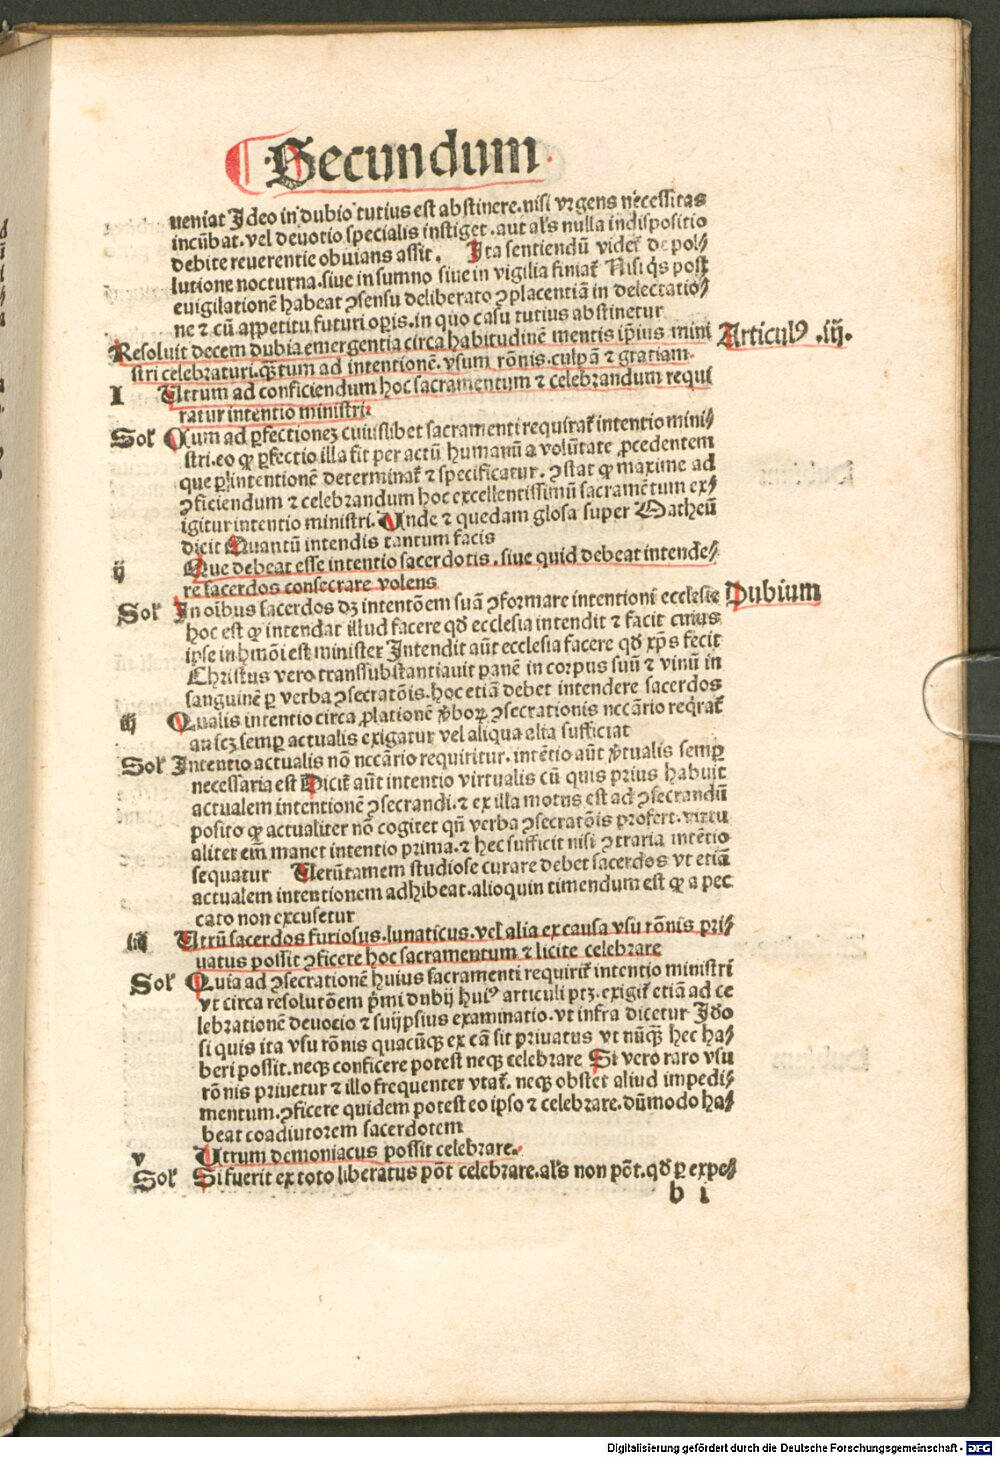 Secundum
ueniat Ideo in dubio tutius est abstinere. nisi vrgens necessitas
incūbat. vel deuotio specialis instiget. aut al's nulla indispositio
debite reuerentie obuians assit. Ita sentiendū videt᷑ de pol⸗
lutione nocturna. siue in sumno siue in vigilia finiat᷑ Nisi q̄s post
euigilationē habeat ꝯsensu deliberato ꝯplacentiā in delectatio⸗
ne ⁊ cū appetitu futuri oꝑis. in quo casu tutius abstinetur
Resoluit decem dubia emergentia circa habitudinē mentis ip̄ius mini Articulꝰ .iij.
stri celebraturi. qꝫtum ad intentionē. vsum rōnis. culpā ⁊ gratiam.
I Utrum ad conficiendum hoc sacramentum ⁊ celebrandum requi
ratur intentio ministri.
Sol᷑ Cum ad ꝑfectionez cuiuslibet sacramenti requirat᷑ intentio mini⸗
stri. eo ꝙ ꝑfectio illa fit per actū humanū a volūtate ꝓcedentem
que ꝑ intentionē determinat᷑ ⁊ specificatur. ꝯstat ꝙ maxime ad
ꝯficiendum ⁊ celebrandum hoc excellentissimū sacramētum ex⸗
igitur intentio ministri. Unde ⁊ quedam glosa super Matheū
dicit Quantū intendis tantum facis
ij Que debeat esse intentio sacerdotis. siue quid debeat intende⸗
re sacerdos consecrare volens
Sol᷑ In oībus sacerdos dꝫ intentōem suā ꝯformare intentioni ecclesie Dubium
hoc est ꝙ intendat illud facere qd̄ ecclesia intendit ⁊ facit cuius
ipse in hmōi est minister Intendit aūt ecclesia facere qd̄ xp̄s fecit
Christus vero transsubstantiauit panē in corpus suū ⁊ vinū in
sanguinē ꝑ verba ꝯsecratōis. hoc etiā debet intendere sacerdos
iij Qualis intentio circa ꝓlationē v̄boꝝ ꝯsecrationis nccārio reqrat᷑
an scꝫ semꝑ actualis exigatur vel aliqua alia sufficiat
Sol᷑ Intentio actualis nō nccārio requiritur. intētio aūt v̄tualis semꝑ
necessaria est Dicit᷑ aūt intentio virtualis cū quis prius habuit
actualem intentionē ꝯsecrandi. ⁊ ex illa motus est ad ꝯsecrandū
posito ꝙ actualiter nō cogitet qn̄ verba ꝯsecratōis profert. virtu
aliter em̄ manet intentio prima. ⁊ hec sufficit nisi ꝯtraria intētio
sequatur Uerūtamem studiose curare debet sacerdos vt etiā
actualem intentionem adhibeat. alioquin timendum est ꝙ a pec
cato non excusetur
iiij Utrū sacerdos furiosus. lunaticus. vel᷑ alia ex causa vsu rōnis pri⸗
uatus possit ꝯficere hoc sacramentum ⁊ licite celebrare
Sol᷑ Quia ad ꝯsecrationē huius sacramenti requirit᷑ intentio ministri
vt circa resolutōem p̄mi dubij huiꝰ articuli ptꝫ. exigit᷑ etiā ad ce
lebrationē deuocio ⁊ sui ipsius examinatio. vt infra dicetur Ido
si quis ita vsu rōnis quacūqꝫ ex cā sit priuatus vt nūqꝫ hec ha⸗
beri possit. neqꝫ conficere potest neqꝫ celebrare Si vero raro vsu
rōnis priuetur ⁊ illo frequenter vtat᷑. neqꝫ obstet aliud impedi⸗
mentum. ꝯficere quidem potest eo ipso ⁊ celebrare. dūmodo ha⸗
beat coadiutorem sacerdotem
v Utrum demoniacus possit celebrare.
Sol᷑ Si fuerit ex toto liberatus pōt celebrare. al's non pōt. qd̄ ꝑ expe⸗
b i
Digitalisierung gefördert durch die Deutsche Forschungsgemeinschaft - DFG